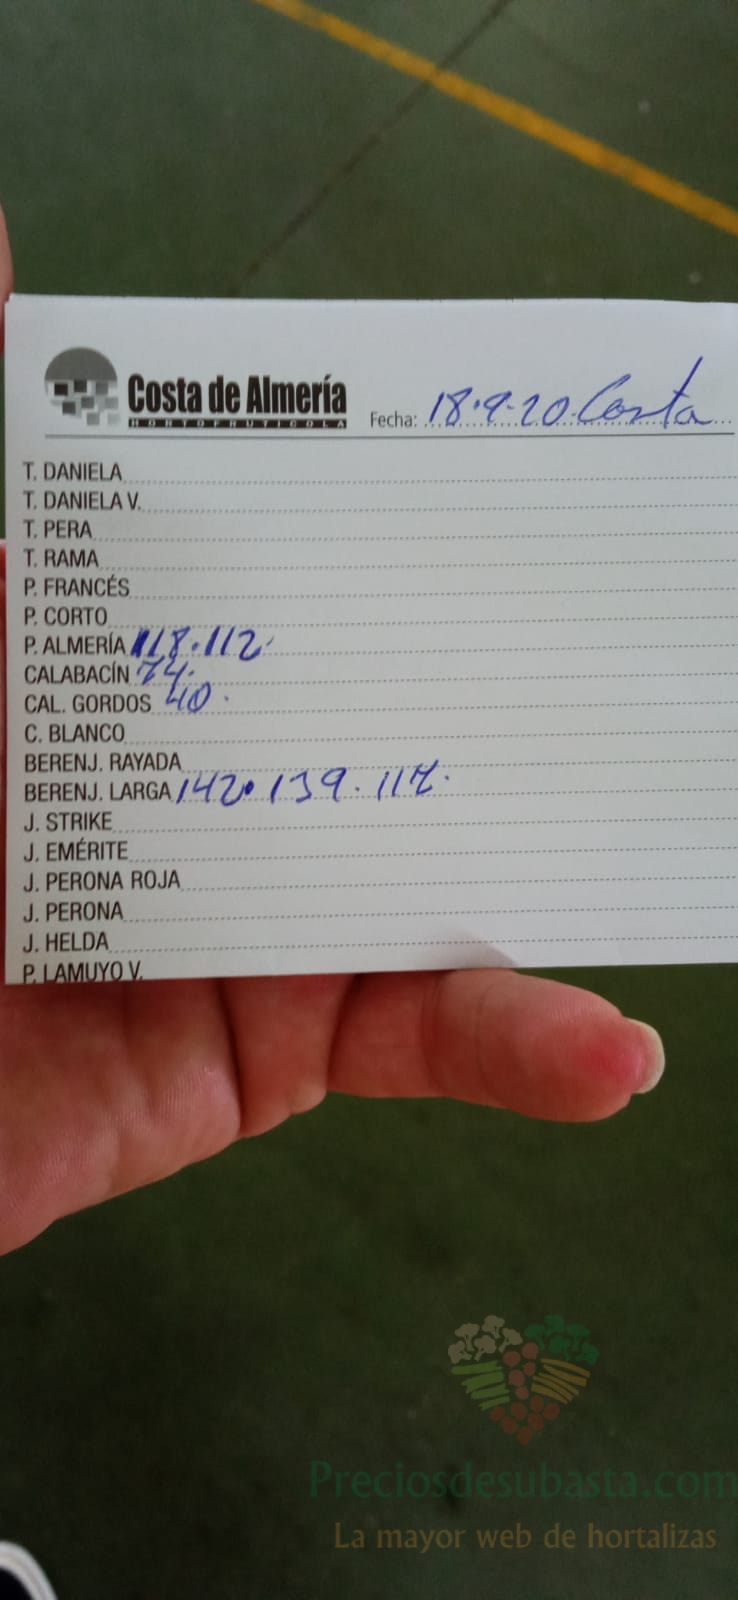 Costa de Almería
HORTOFRUTICOLA
Fecha: 18.9.20 Costa
T. DANIELA
T. DANIELA V.
T. PERA
T. RAMA
P. FRANCÉS
P. CORTO
P. ALMERÍA 118.112.
CALABACÍN 74.
CAL. GORDOS 40.
C. BLANCO
BERENJ. RAYADA
BERENJ. LARGA 142. 139.
J. STRIKE
J. EMÉRITE
J. PERONA ROJA
J. PERONA
J. HELDA
P. LAMUYO V.
Preciosdesubasta.com
La mayor web de hortalizas